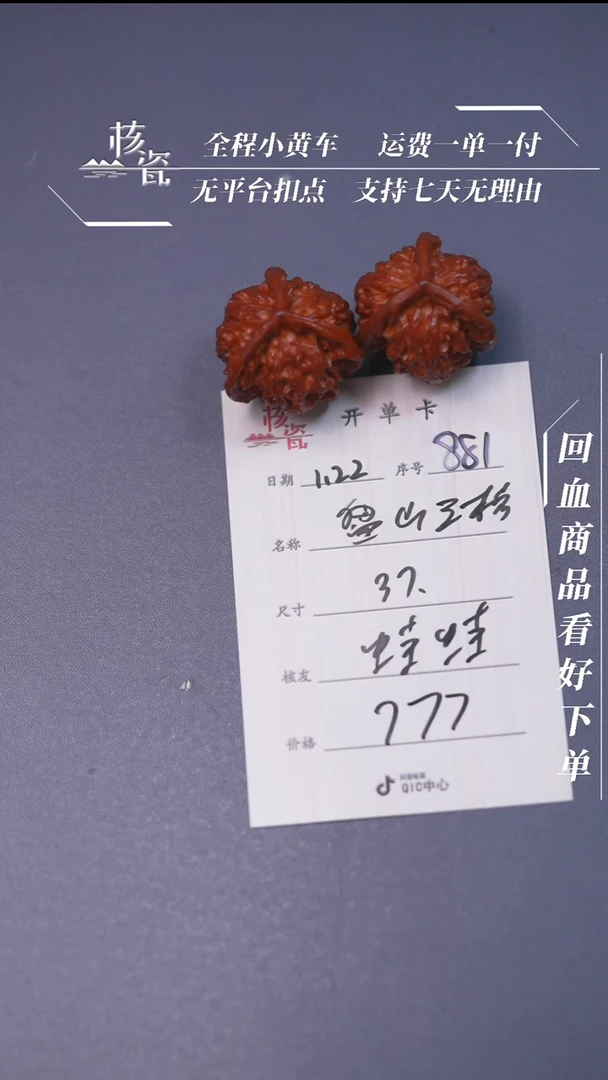 核瓷
全程小黄车 运费一单一付
无平台扣点 支持七天无理由
核瓷 开单卡
日期 1.22 序号 881
名称 盘山
尺寸 37.
核友
价格 777
抖音电商
QIC中心
回血商品看好下单